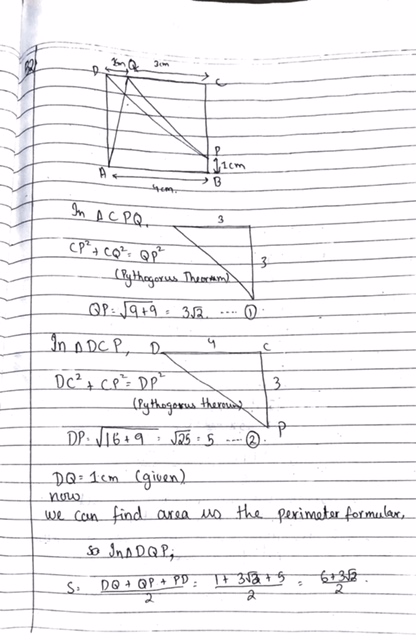 Q2)
D 1cm Q 3cm C
P
1cm
A B
4cm
In Δ CPQ, 3
CP² + CQ² = QP² 3
(Pythogorus Theorum)
QP = √9+9 = 3√2 .... ①
In Δ DCP, D 4 C
DC² + CP² = DP² 3
(Pythogorus therour)
DP = √16+9 = √25 = 5 .... ② P
DQ = 1cm (given)
now
we can find area us the perimeter formular,
so In Δ DQP,
S = DQ + QP + PD / 2 = 1 + 3√2 + 5 / 2 = 6+3√2 / 2 .